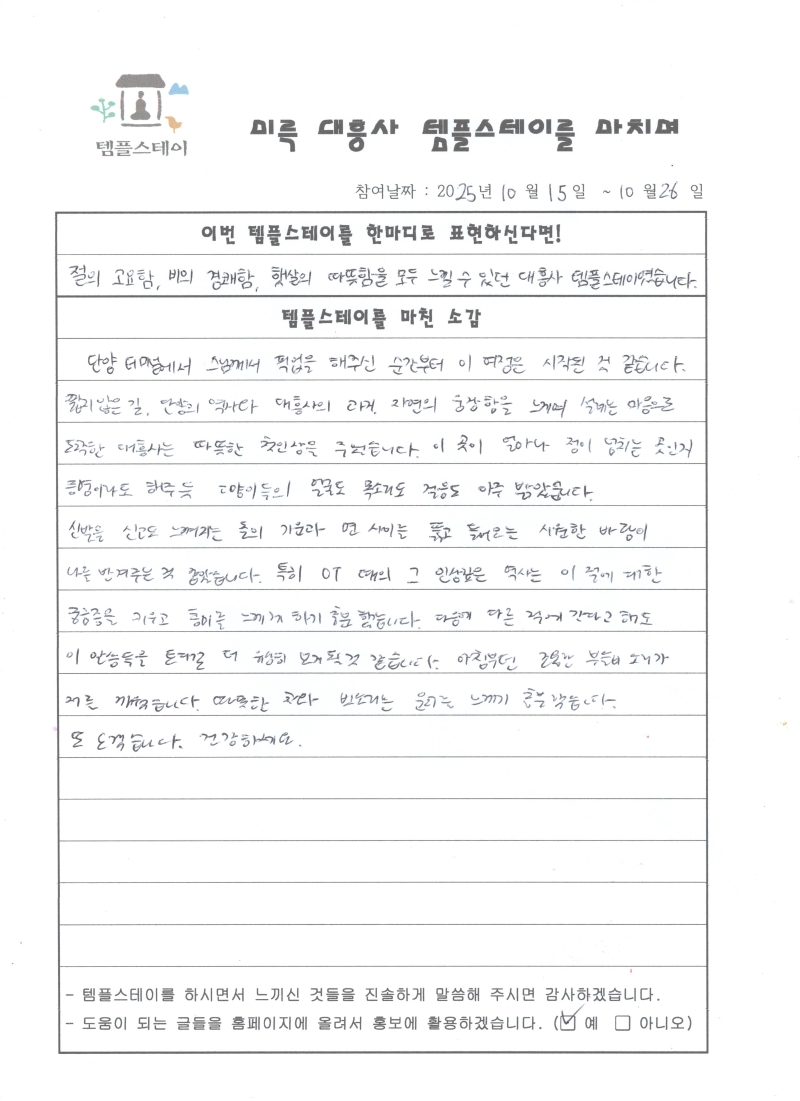 템플스테이
미륵 대흥사 템플스테이를 마치며
참여날짜 : 2025년 10 월 15일 ~ 10 월 26 일
이번 템플스테이를 한마디로 표현하신다면!
절의 고요함, 비의 경쾌함, 햇살의 따뜻함을 모두 느낄 수 있던 대흥사 템플스테이였습니다.
템플스테이를 마친 소감
단양 터미널에서 스님께서 픽업을 해주신 순간부터 이 여정은 시작된 것 같습니다.
짧지않은 길, 단양의 역사와 대흥사의 과거, 자연의 웅장함을 느끼며 설레는 마음으로
도착한 대흥사는 따뜻한 첫인상을 주었습니다. 이 곳이 얼마나 정이 넘치는 곳인지
증명이라도 해주듯 고양이들의 얼굴도 목소리도 걸음도 아주 밝았습니다.
신발을 신고도 느껴지는 돌의 기운과 면 사이는 뚫고 들어오는 시원한 바람이
나를 반겨주는 것 같았습니다. 특히 OT 때의 그 인상깊은 역사는 이 절에 대한
궁금증을 키우고 흥미를 느끼게 하기 충분했습니다. 다음에 다른 절에 간다고 해도
이 말씀들을 더 유심히 보게될것 같습니다. 아침부터 고요한 소리가
저를 깨웠습니다. 따뜻한 차와 빗소리는 느끼기 충분했습니다.
또 오겠습니다. 건강하세요.
- 템플스테이를 하시면서 느끼신 것들을 진솔하게 말씀해 주시면 감사하겠습니다.
- 도움이 되는 글들을 홈페이지에 올려서 홍보에 활용하겠습니다. (☑ 예 □ 아니오)